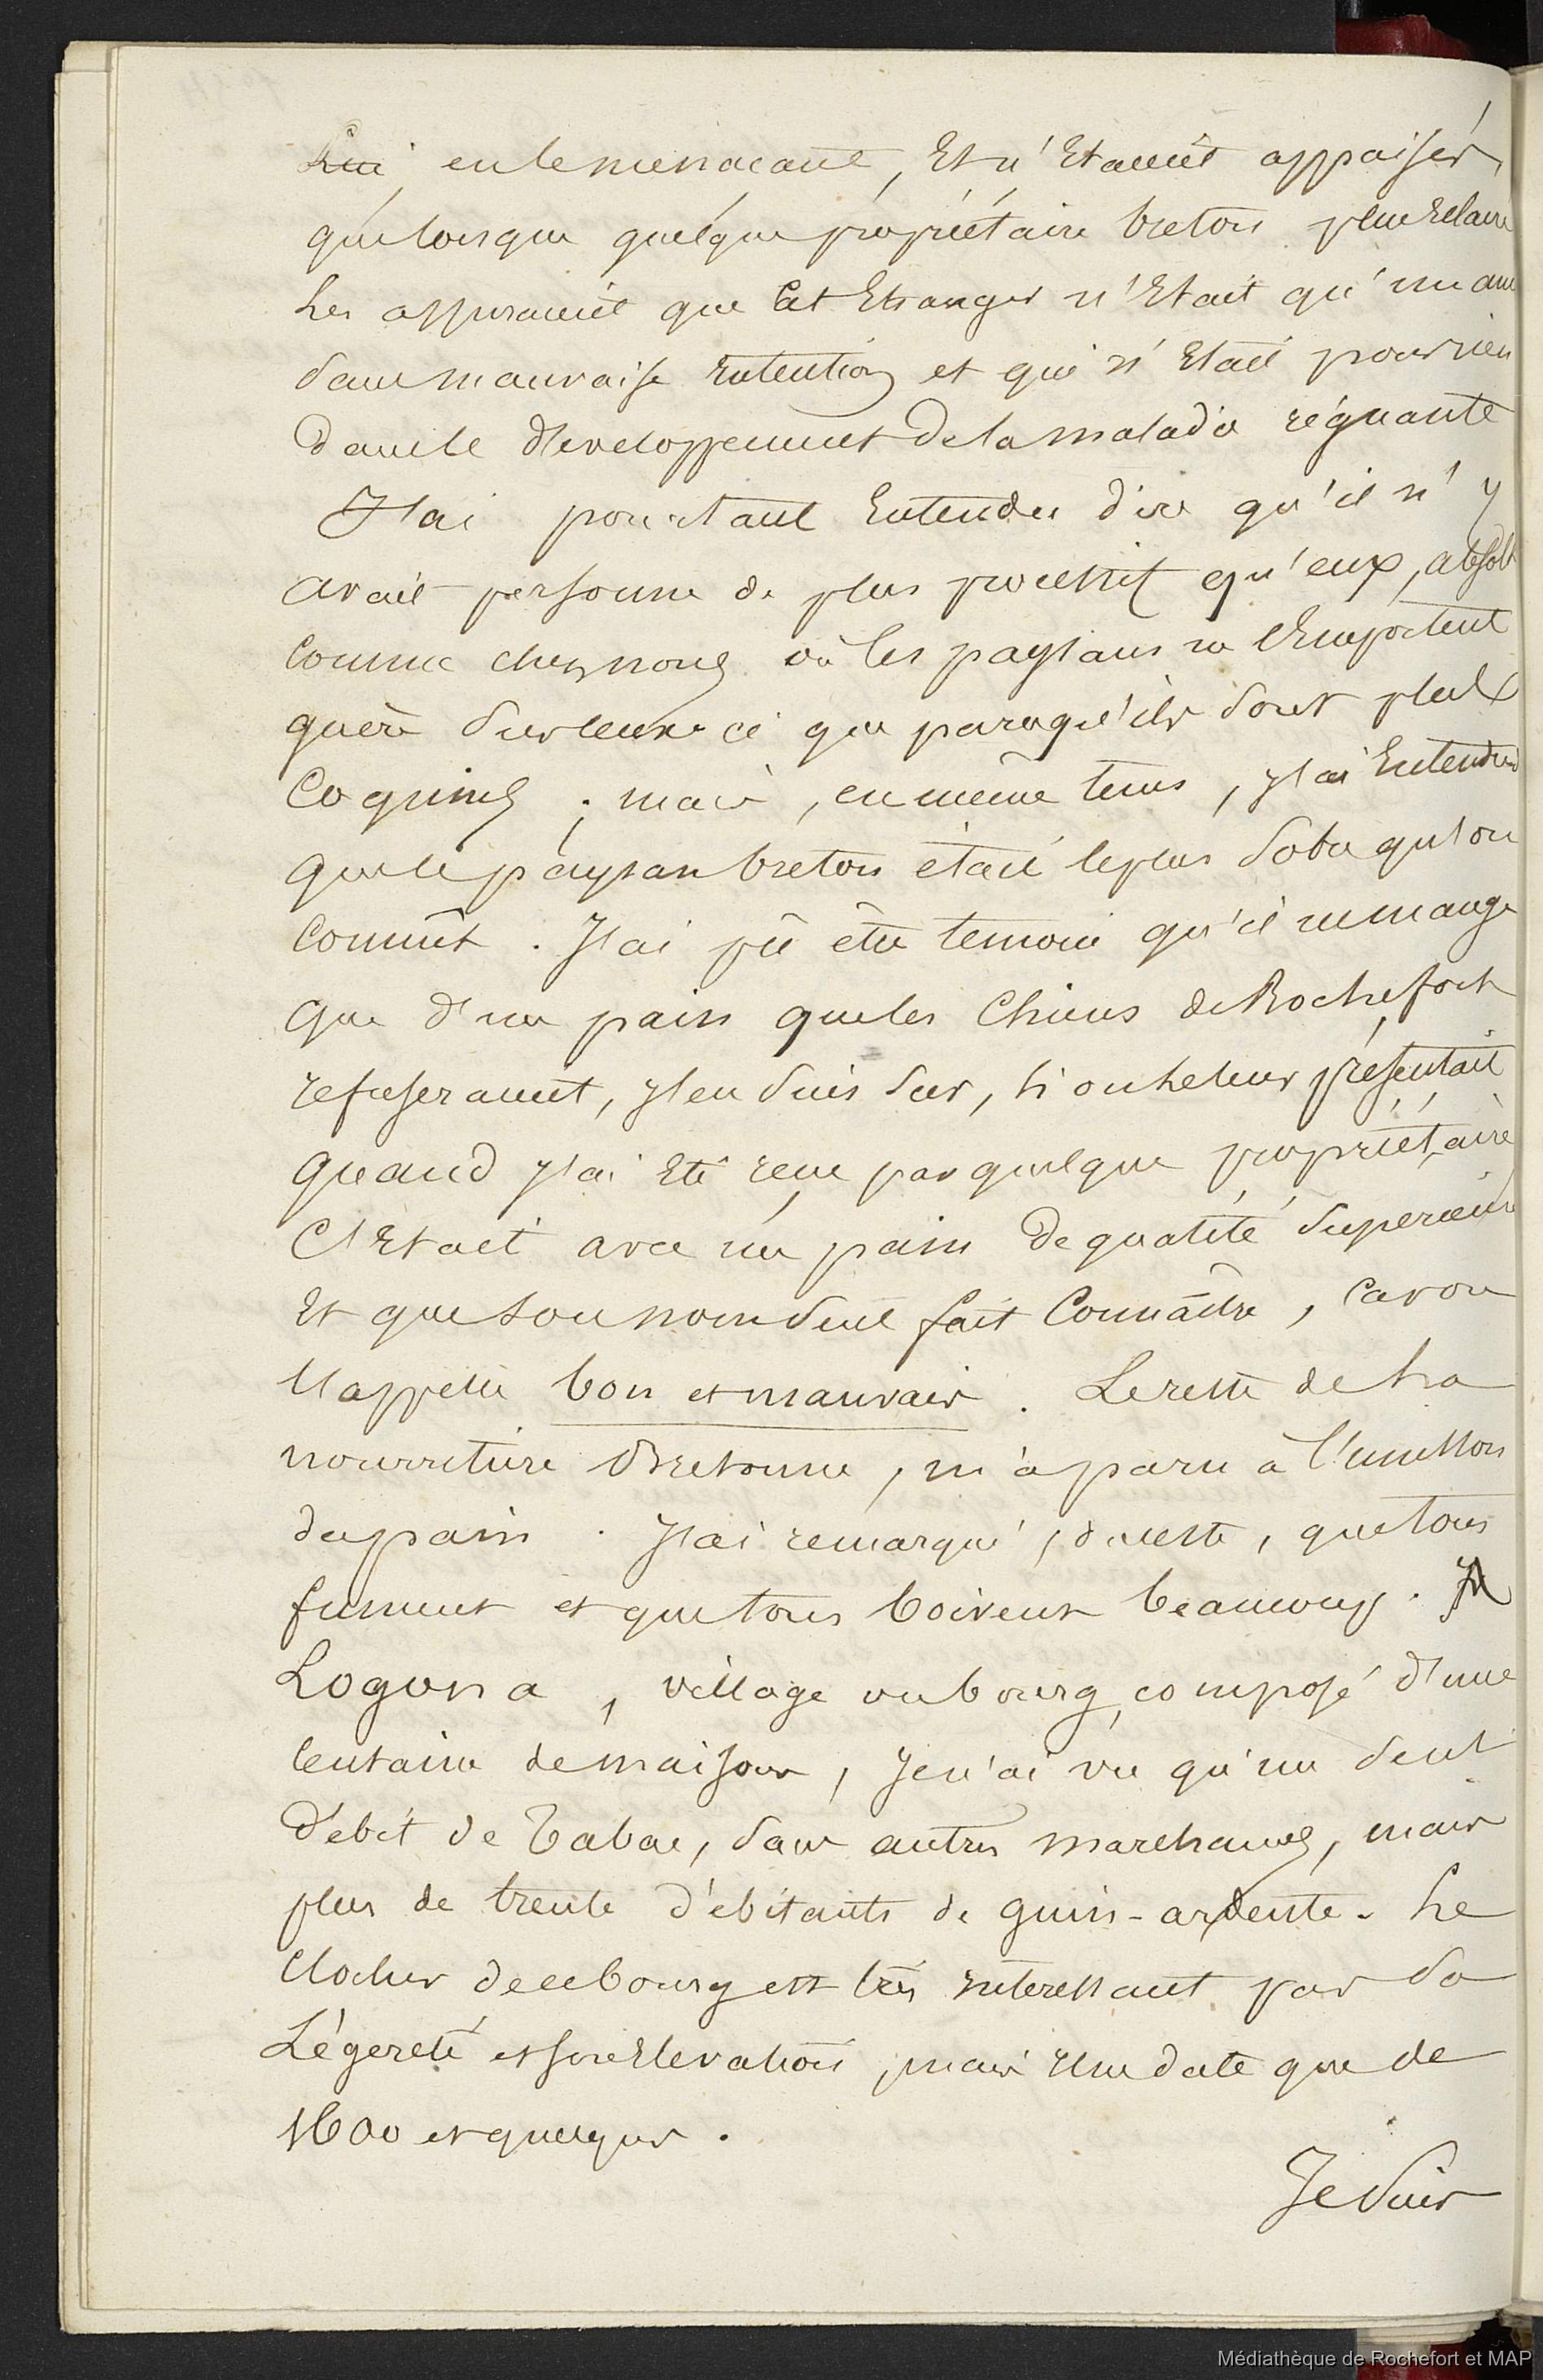 Lui en le menaçant, Et n'Etaient appaisés,
que lorsque quelque propriétaire breton plus Eclairé
Les assuraient que Cet Etranger n'Etait qu'un ami
sans mauvaise Intention et qui n'Etait pour rien
dans le développement de la maladie régnante
J'ai pourtant Entendu dire qu'il n'y
avait personne de plus processif qu'eux, absolt
Comme chez nous où les paysans ne l'Emportent
guère sur ceux ci que parcequ'ils sont plus
Coquins ; mais, en même tems, j'ai Entendu
que le paysan breton était le plus sobre qu'on
Connût. J'ai pû être temoin qu'il ne mange
que d'un pain que les Chiens de Rochefort
refuseraient, j'en suis sur, si on le leur présentait
quand j'ai Eté reçu par quelque propriétaire
C'Etait avec un pain de qualité superieure
Et que son nom seul fait Connaître, car on
l'appelle bon et mauvais. Le reste de la
nourriture Bretonne, m'a paru à l'unisson
du pain. J'ai remarqué, du reste, que tous
fument et que tous boivent beaucoup. A
Logona, village ou bourg, composé d'une
Centaine de maisons, je n'ai vu qu'un seul
débit de Tabac, sans autres marchands, mais
plus de trente débitants de guin-ardente. Le
Clocher de ce bourg est très intéressant par sa
Légereté et son Elevation, mais il ne date que de
1600 et quelques.
Je suis
Médiathèque de Rochefort et MAP